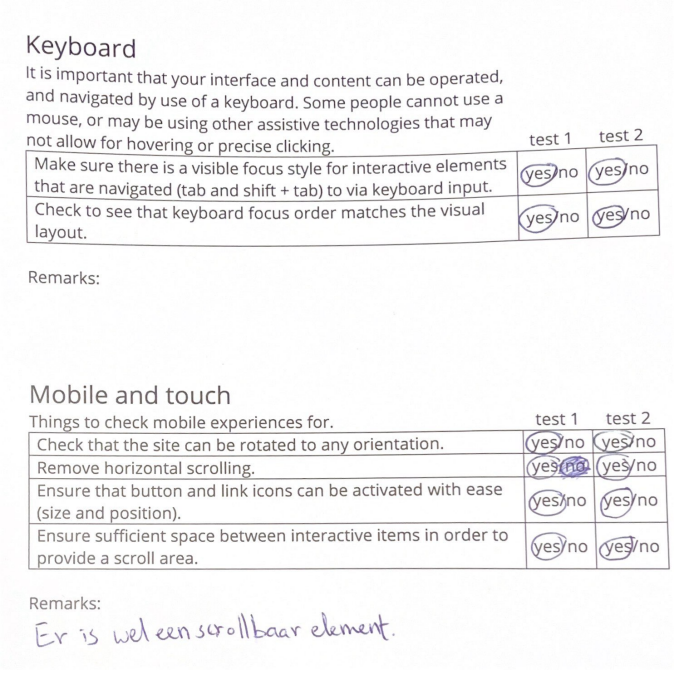 Keyboard
It is important that your interface and content can be operated,
and navigated by use of a keyboard. Some people cannot use a
mouse, or may be using other assistive technologies that may
not allow for hovering or precise clicking.
test 1 test 2
Make sure there is a visible focus style for interactive elements
that are navigated (tab and shift + tab) to via keyboard input.
yes/no yes/no
Check to see that keyboard focus order matches the visual
layout.
yes/no yes/no
Remarks:
Mobile and touch
Things to check mobile experiences for.
test 1 test 2
Check that the site can be rotated to any orientation.
yes/no yes/no
Remove horizontal scrolling.
yes/no yes/no
Ensure that button and link icons can be activated with ease
(size and position).
yes/no yes/no
Ensure sufficient space between interactive items in order to
provide a scroll area.
yes/no yes/no
Remarks:
Er is wel een scrollbaar element.